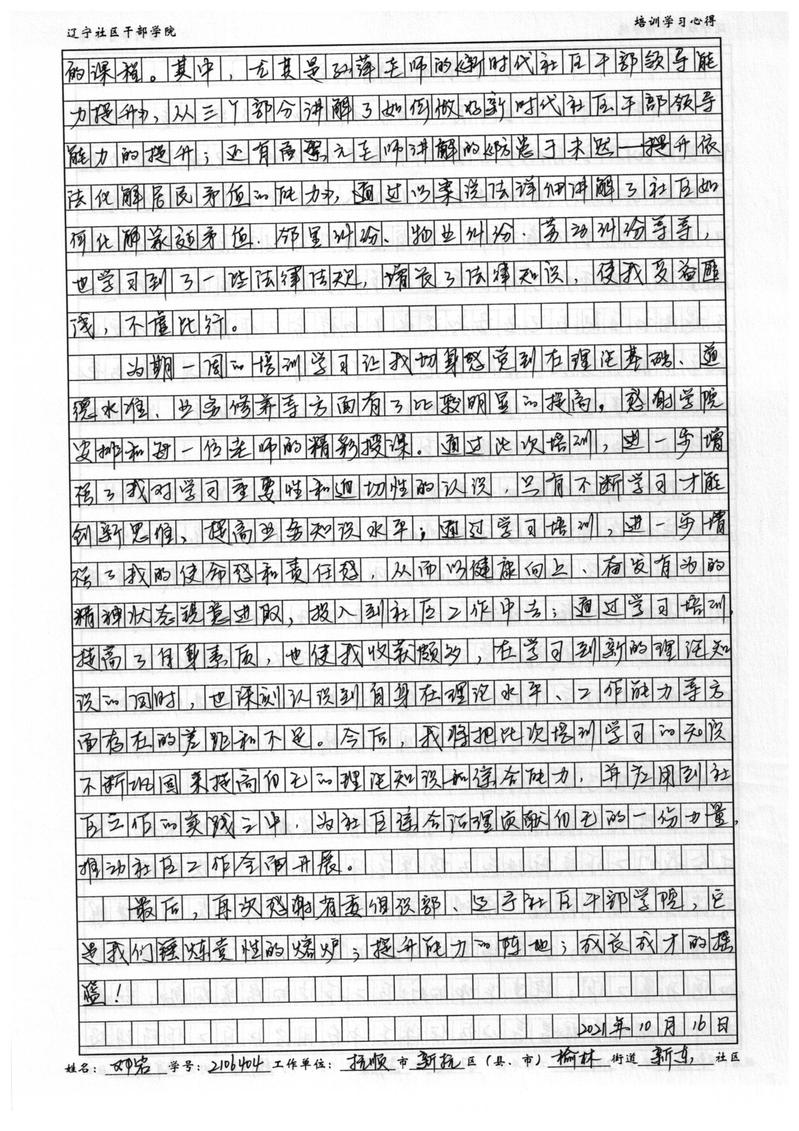 辽宁社区干部学院 培训学习心得
的课程。其中，尤其是 老师的《新时代社区干部领导能
力提升》，从三个部分讲解了如何做好新时代社区干部领导
能力的提升；还有 老师讲解的《防患于未然——提升依
法化解居民矛盾的能力》，通过以案说法详细讲解了社区如
何化解家庭矛盾、邻里纠纷、物业纠纷、劳动纠纷等等，
也学习到了一些法律法规，增长了法律知识，使我受益匪
浅，不虚此行。
为期一周的培训学习让我切身感觉到在理论基础、道
德水准、业务修养等方面有了比较明显的提高。感谢学院
安排和每一位老师的精彩授课。通过此次培训，进一步增
强了我对学习重要性和迫切性的认识，只有不断学习才能
创新思维，提高业务知识水平；通过学习培训，进一步增
强了我的使命感和责任感，从而以健康向上、奋发有为的
精神状态锐意进取，投入到社区工作中去；通过学习培训，
提高了自身素质，也使我收获颇多，在学习到新的理论知
识的同时，也深刻认识到自身在理论水平、工作能力等方
面存在的差距和不足。今后，我将把此次培训学习的知识
不断巩固来提高自己的理论知识和综合能力，并应用到社
区工作的实践之中，为社区综合治理贡献自己的一份力量，
推动社区工作全面开展。
最后，再次感谢省委组织部、辽宁社区干部学院，它
是我们锤炼党性的熔炉；提升能力的阵地；成长成才的摇
篮！
2021年10月16日
姓名： 学号：2106404 工作单位：抚顺市新抚区（县、市）榆林街道新东社区